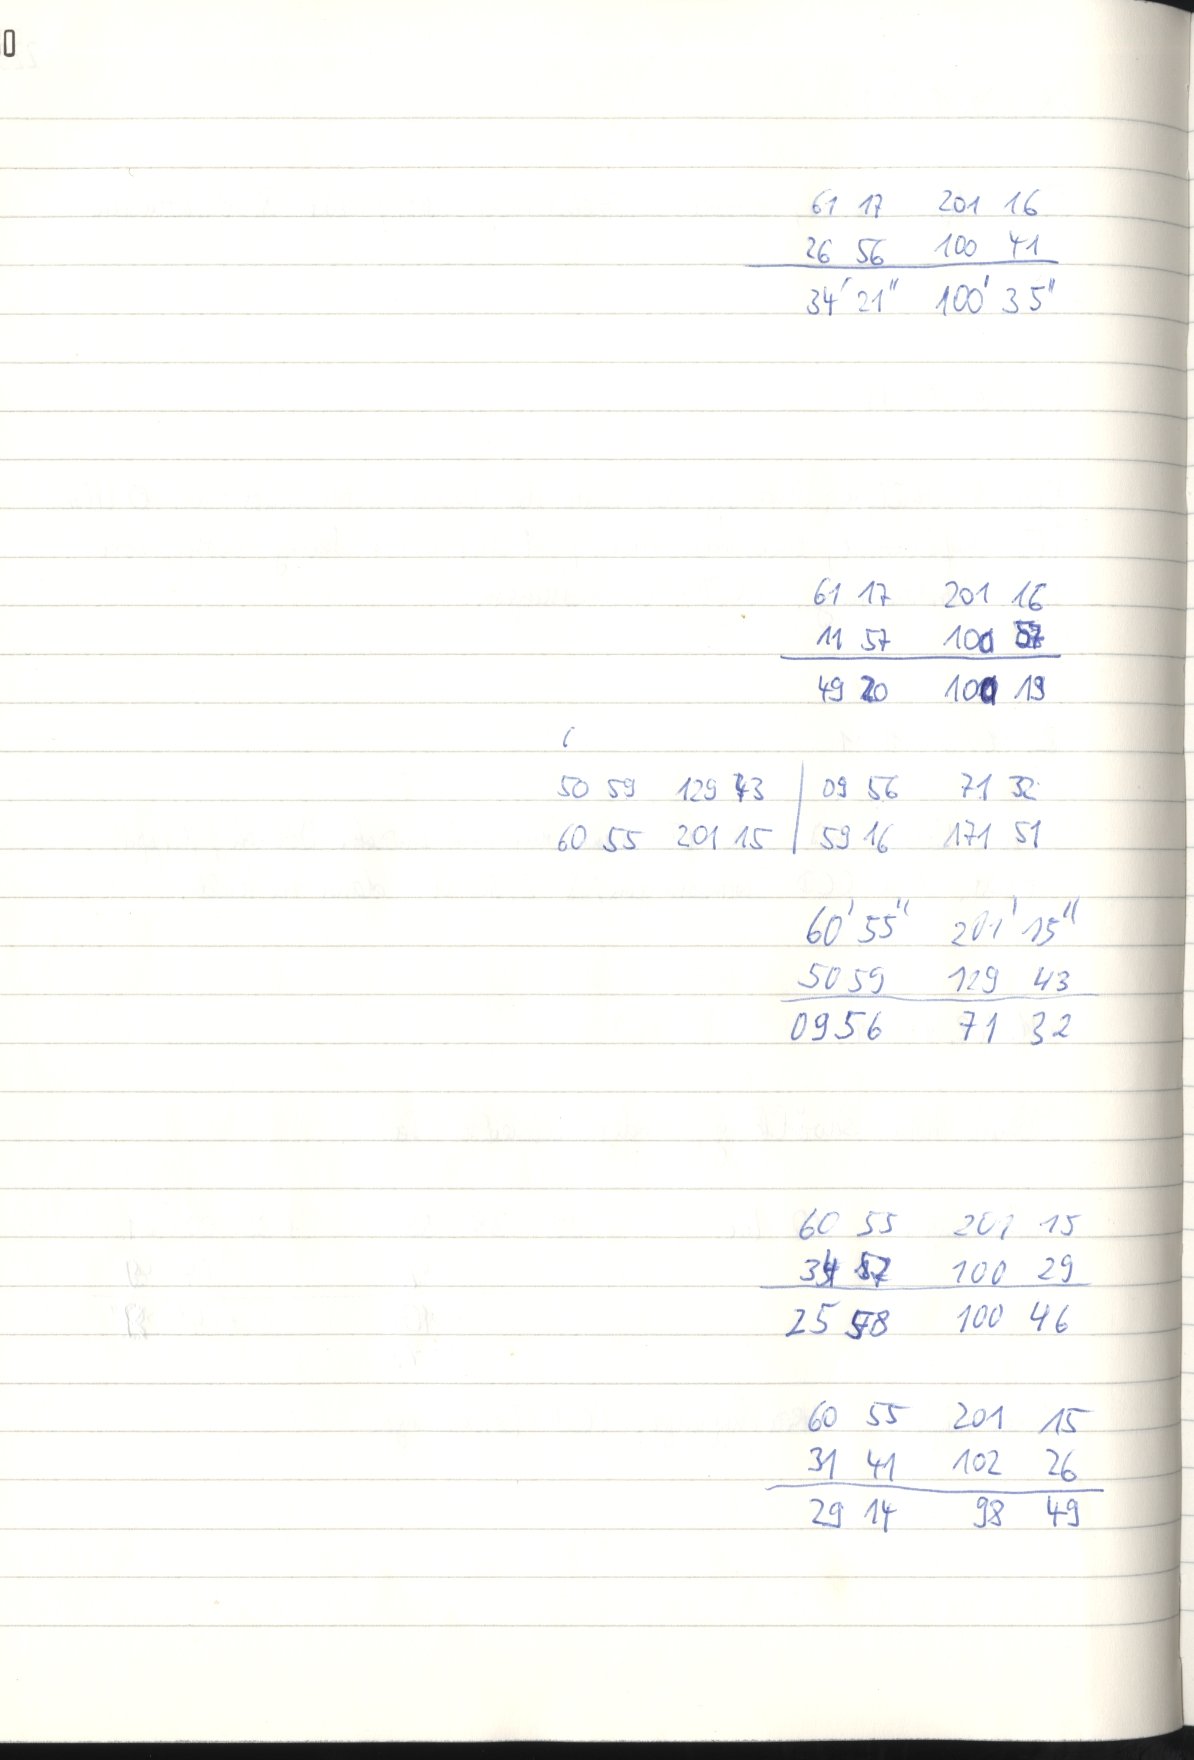 0
61 17 201 16
26 56 100 41
34' 21" 100' 35"
61 17 201 16
11 57 100 57
49 20 100 19
50 59 129 43 | 09 56 71 32
60 55 201 15 | 59 16 171 51
60' 55" 201' 15"
50 59 129 43
09 56 71 32
60 55 201 15
34 57 100 29
25 58 100 46
60 55 201 15
31 41 102 26
29 14 98 49